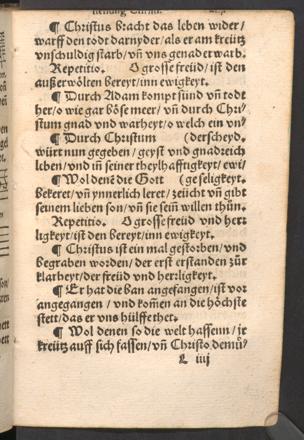 ¶ Christus bracht das leben wider/
warff den todt darnyder/als er am kreütz
vnschuldig starb/vñ vns genad erwarb.
Repetitio. O grosse freüd/ist den
außerwölten bereyt/inn ewigkeyt.
¶ Durch Adam kompt sünd vñ todt
her/o wie gar böse meer/vñ durch Chri/
stum gnad vnd warheyt/o welch ein vn/
¶ Durch Christum (derscheyd.
würt nun gegeben/geyst vnd gnadreich
leben/vnd iñ seiner theylhafftigkeyt/ewi/
¶ Wol den ẽ die Gott (ge seligkeyt.
Bekeret/vñ ynnerlich leret/zeücht vñ gibt
seinem lieben son/vñ sie seiñ willen thün.
Repetitio. O grosse freüd vnd herr
ligkeyt/ist den bereyt/inn ewigkeyt.
¶ Christus ist ein mal gestorben/vnd
begraben worden/der erst erstanden zür
klarheyt/der freüd vnd herrligkeyt.
¶ Er hat die ban angefangen/ist vor
angegangen/vnd kom̃en an die höchste
stett/das er vns hülffe thet.
¶ Wol denen so die welt hassenn/ir
kreütz auff sich fassen/vñ Christo demü/
L iiij